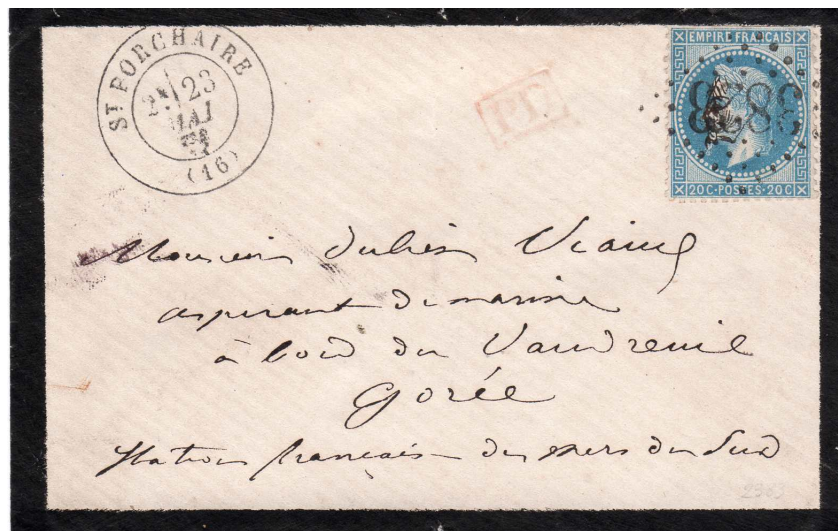 ST PORCHAIRE
23
MAI
(16)
P.P.
EMPIRE FRANCAIS
3838
20 C - POSTES - 20 C
Monsieur Julien Viaud
aspirant de marine
à bord du Vaudreuil
Gorée
Station française des mers du Sud